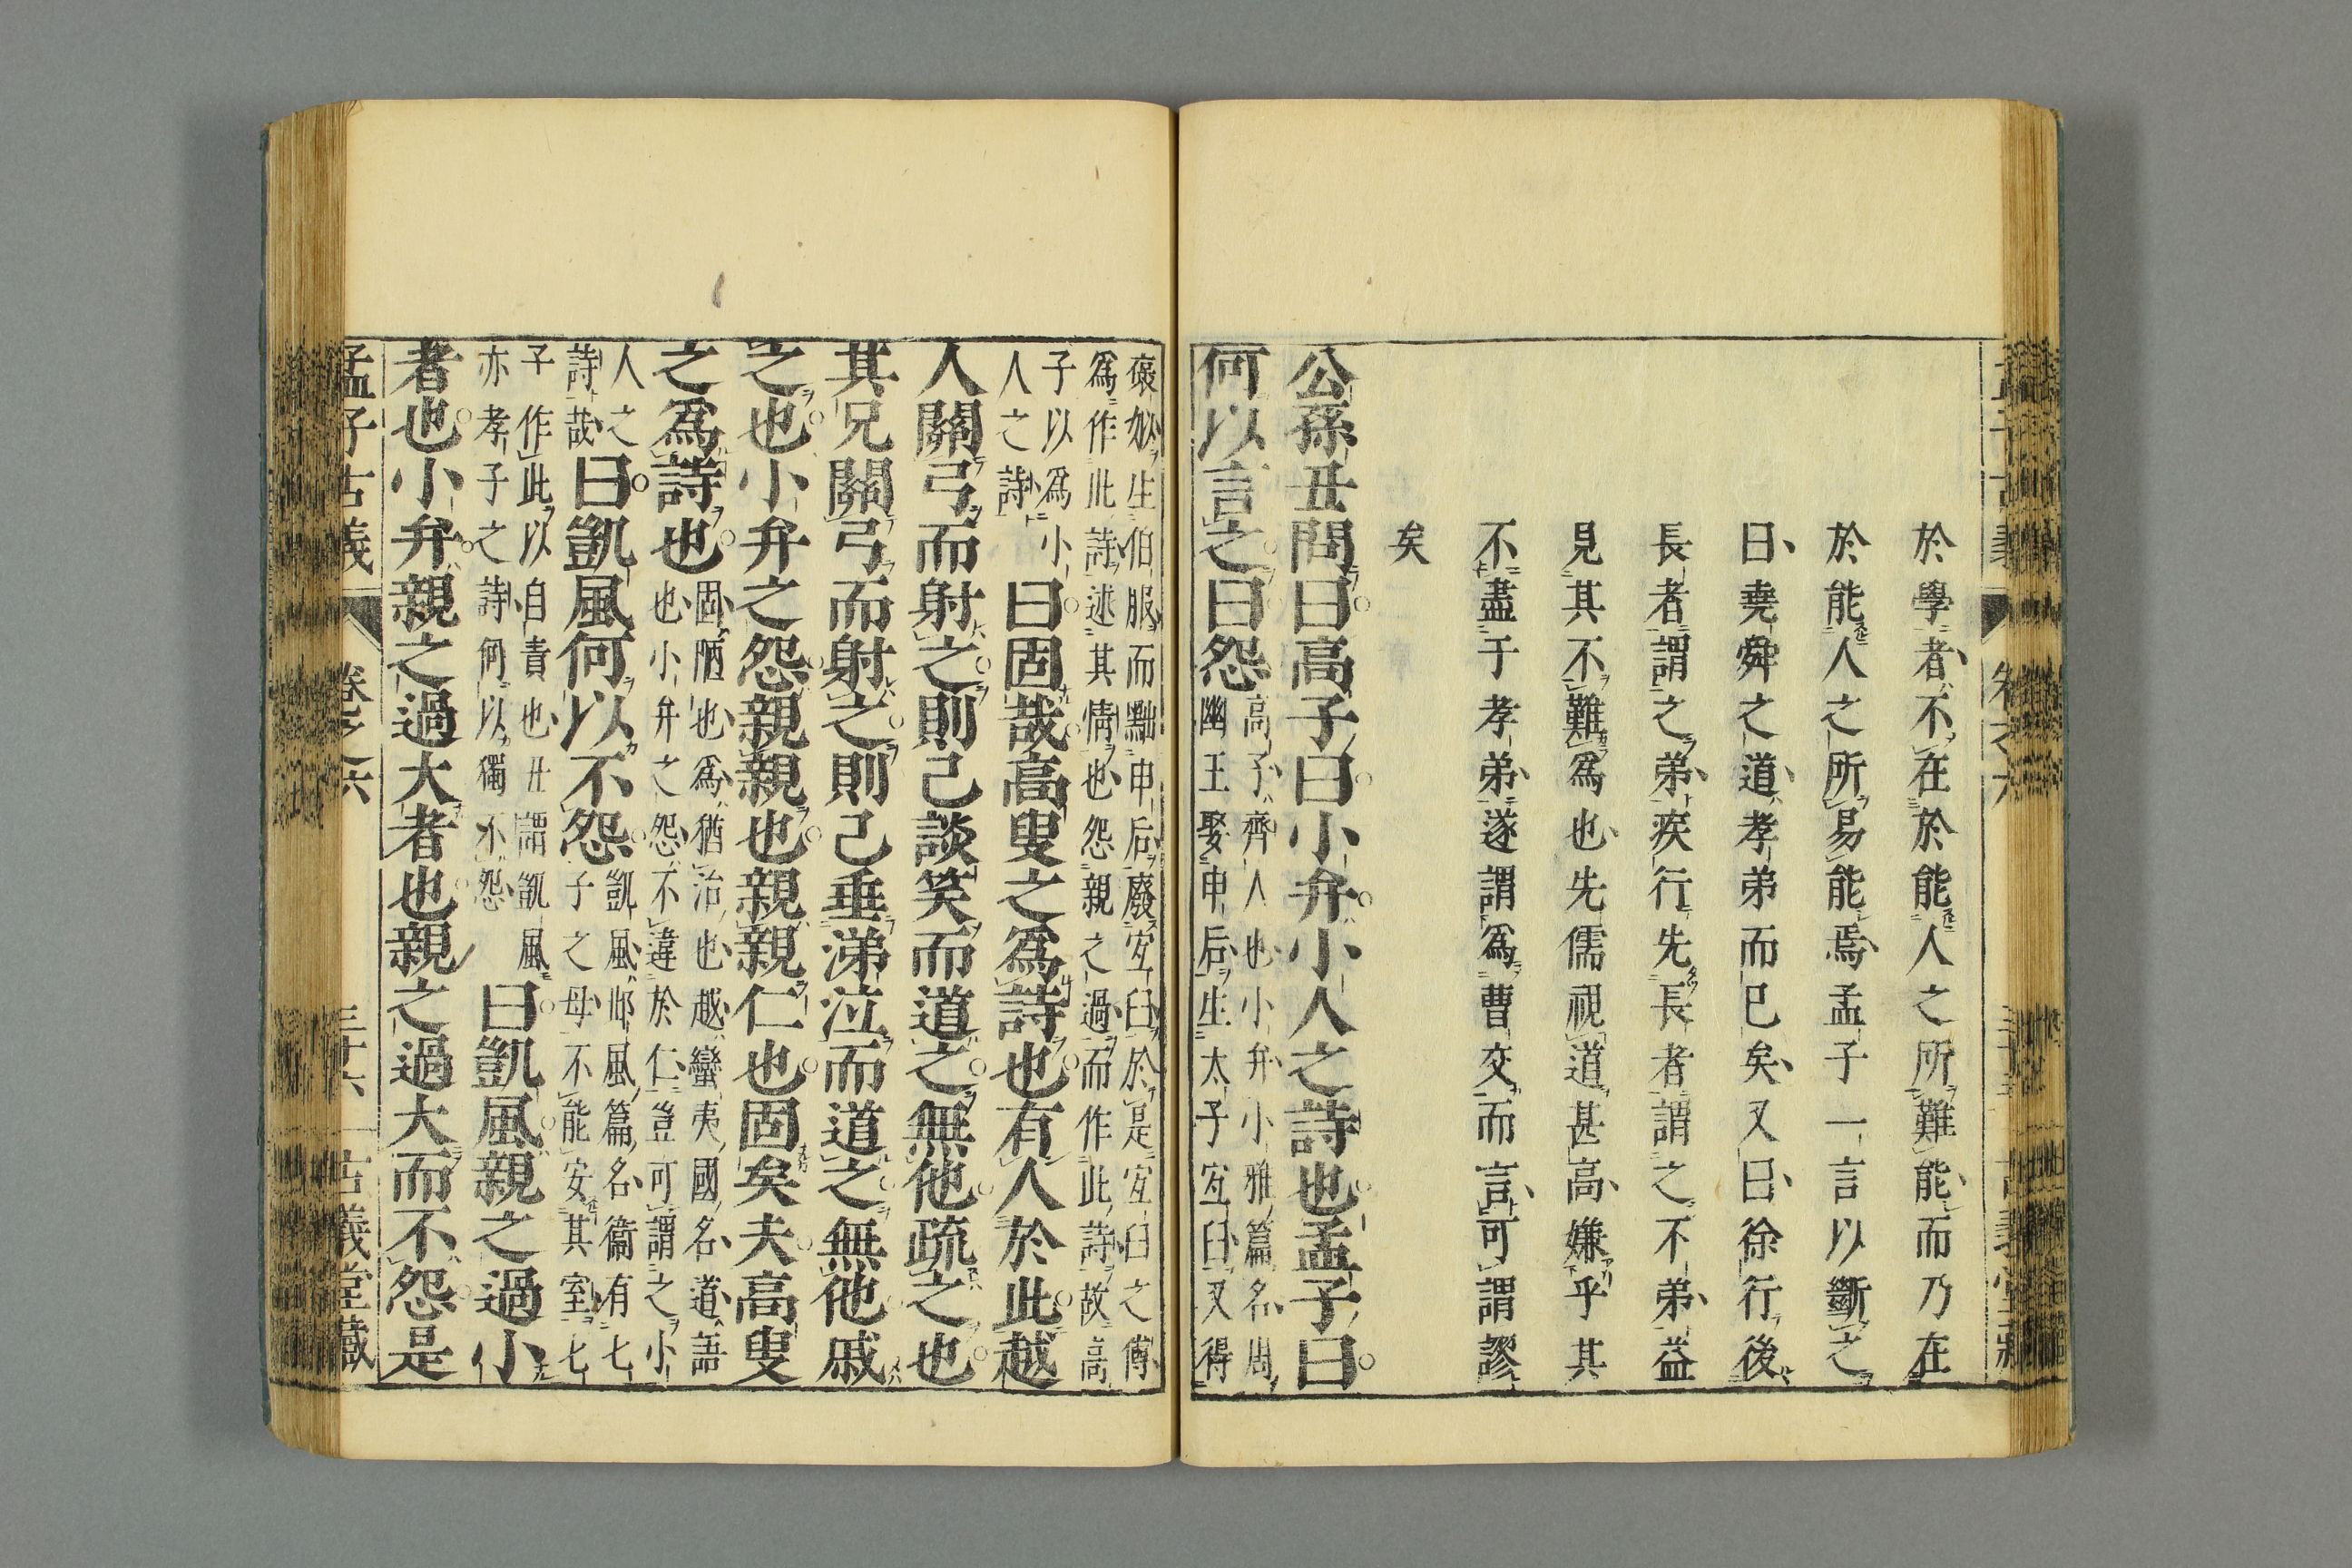 於學者不在於能人之所難能而乃在
於能人之所易能焉孟子一言以斷之
曰堯舜之道孝弟而已矣又曰徐行後
長者謂之弟疾行先長者謂之不弟益
見其不難爲也先儒視道甚高嫌乎其
不盡于孝弟遂謂爲曹交而言可謂謬
矣
公孫丑問曰高子曰小弁小人之詩也孟子曰
何以言之曰怨
高子齊人也小弁小雅篇名周
幽王娶申后生太子宜臼又得
褒姒生伯服而黜申后廢宜臼於是宜臼之傅
爲作此詩述其情也怨親之過而作此詩故高
子以爲小
人之詩
曰固哉高叟之爲詩也有人於此越
人關弓而射之則己談笑而道之無他疏之也
其兄關弓而射之則己垂涕泣而道之無他戚
之也小弁之怨親親也親親仁也固矣夫高叟
之爲詩也
固陋也爲猶治也越蠻夷國名道語
也小弁之怨不違於仁豈可謂之小
人之
詩哉
曰凱風何以不怨
凱風邶風篇名衞有七
子之母不能安其室七
子作此以自責也丑謂凱風
亦孝子之詩何以獨不怨
曰凱風親之過小
者也小弁親之過大者也親之過大而不怨是
孟子古義
卷之六
三十六
古義堂藏